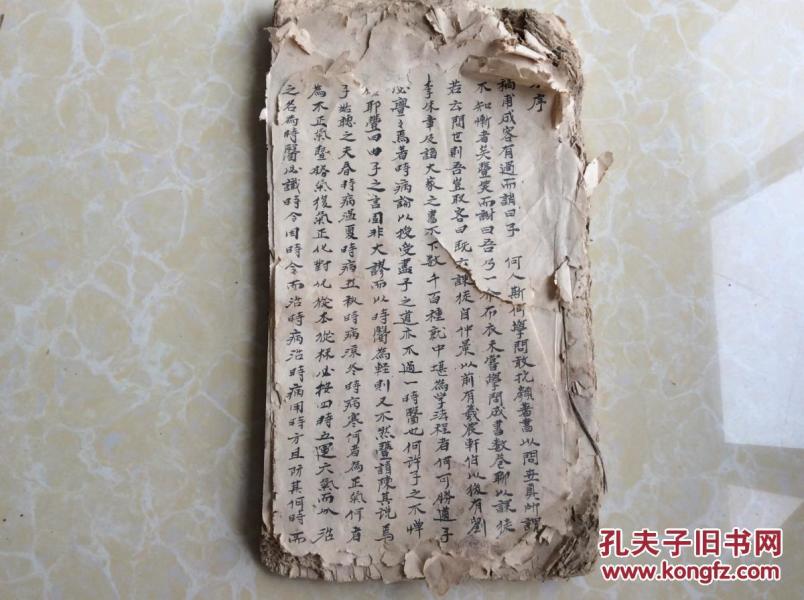 序
稿甫成客有過而誚曰子 何人斯何學問敢抗顏著書以問世真所謂
不知慚者矣豐笑而謝曰吾乃一介布衣未嘗學問成書數卷聊以課徒
若云問世則吾豈敢客曰既云課徒自仲景以前有羲農軒伯以後有劉
李朱章及諸大家之書不下數千百種就中堪為學法程者何可勝道子
必亹亹焉著時病論以授受盡子之道亦不過一時醫也何許子之不憚
耶豐曰由子之言固非大謬而以時醫為輕則又不然豐請陳其說焉
子姑聽之夫春時病溫夏時病丑秋時病涼冬時病寒何者為正氣何者
為不正氣暨勝氣復氣正化對化從本從標必按四時五運六氣而
之名為時醫必識時令因時令而治時病治時病用時方且防其何時而
孔夫子旧书网
www.kongfz.com